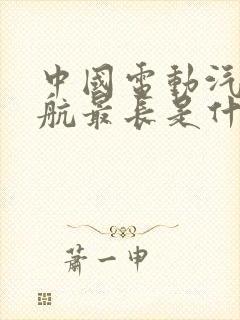 中國電動汽
航最長是什
蕭一申